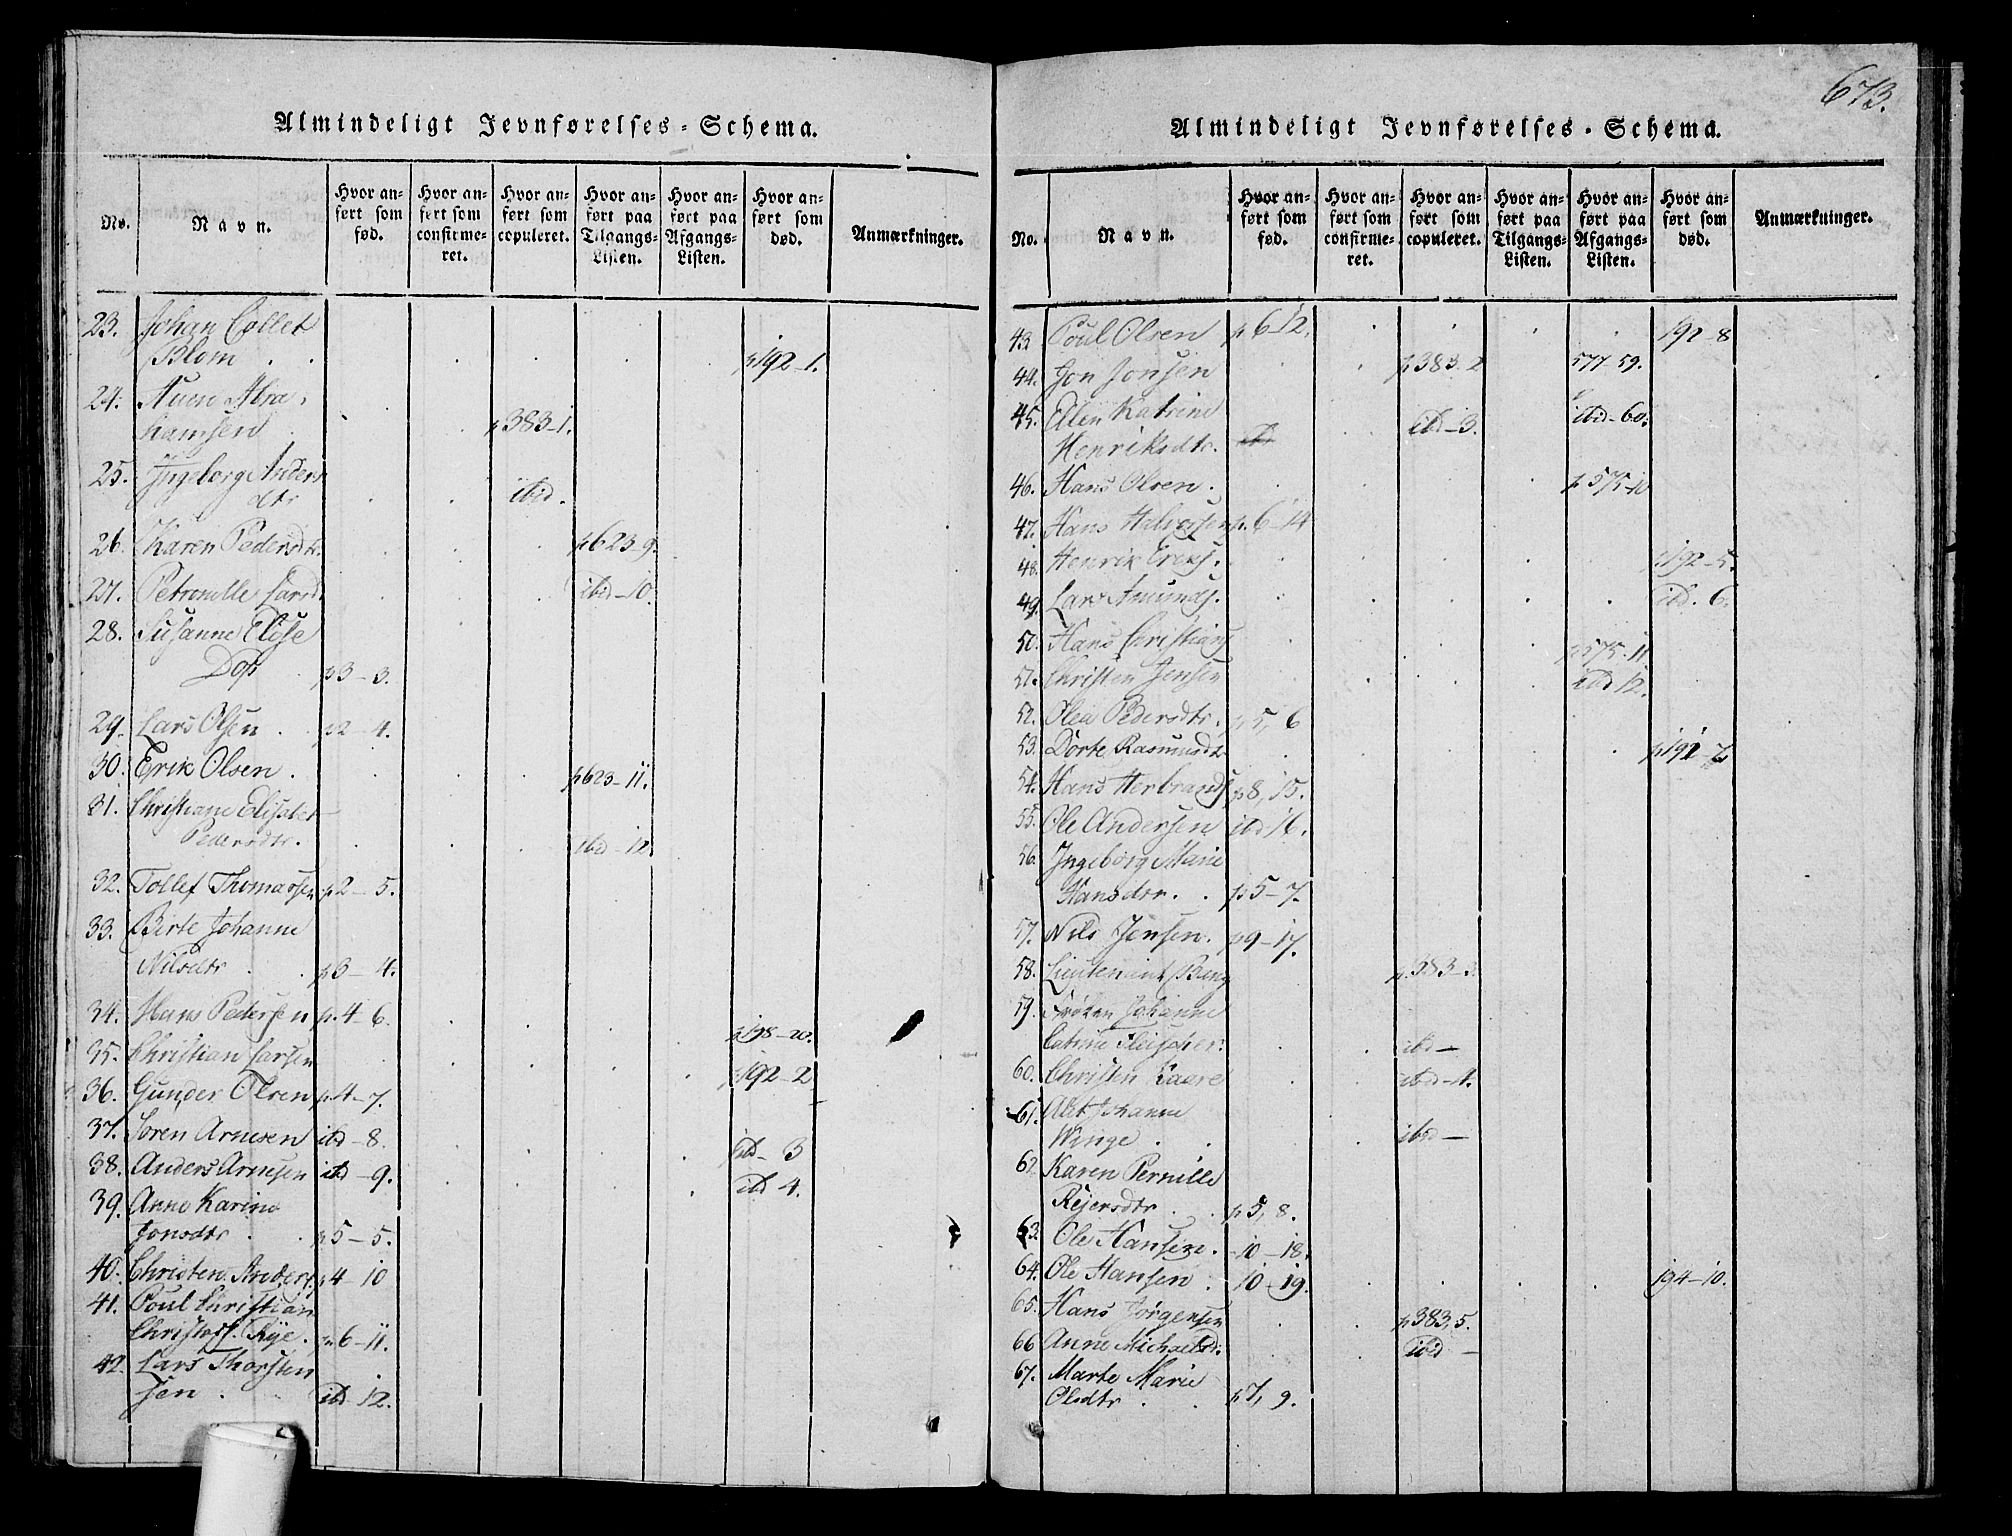 Almindeligt Jevnførelses-Schema.
No. Navn. Hvor anført som fød. Hvor anført som confirmeret. Hvor anført som copuleret. Hvor anført paa Tilgangs-Listen. Hvor anført paa Afgangs-Listen. Hvor anført som død. Anmærkninger.
23. Johan Collet
Blom . . p192-1.
24. Auen Abra
hamsen p383-1.
25. Ingeborg Anders
dtr ibid.
26. Karen Pedersdtr. p623-9.
27. Petronelle Larsd. ibid-10.
28. Susanne Elise
Dop p3-3.
29. Lars Olsen . p2-4.
30. Erik Olsen . p623-11.
31. Christiane Elisabet
Pedersdtr. ibid-12.
32. Tollef Thomassen p2-5.
33. Birte Johanne
Nilsdtr . . p3-4.
34. Hans Pedersen p.4-6. p198-20.
35. Christian Larsen p192-2
36. Gunder Olsen p4-7.
37. Soren Arnesen ibd-8. ibd-3
38. Anders Arnesen ibd-9. ibd 4.
39. Anne Karine
Jonsdtr . . p5-5.
40. Christen Anders. p4-10
41. Poul Christian
Christoff. Rye. p6-11.
42. Lars Thorsten
sen . . ibd 12.
673.
Almindeligt Jevnførelses-Schema.
No. Navn. Hvor anført som fød. Hvor anført som confirmeret. Hvor anført som copuleret. Hvor anført paa Tilgangs-Listen. Hvor anført paa Afgangs-Listen. Hvor anført som død. Anmærkninger.
43 Poul Olsen p6-12. 192-8
44. Jon Jonsen p383-2 577-59.
45. Elen Katrine ibd-3. ibid-60.
Henriksdtr. ibd
46. Hans Olsen . p575-10
47. Hans Halvorsen p.6-14
48. Henrik Eriks. p192-5.
49. Lars Amunds. ibd. 6.
50. Hans Christians p575-11
51. Christen Jensen ibd 12.
52. Olea Pedersdtr. p5, 6
53. Dorte Rasmusdtr p192-7
54. Hans Herbrands p8, 15.
55. Ole Andersen ibd 16.
56. Ingeborg Marie
Hansdtr. . p5-7.
57. Nils Jensen. p9-17.
58. Lieutenant Bang p.383-3.
59. Frøken Johanne
Catrine Fleischer. ibd-
60. Christen Kaare ibd-4.
61. Alet Johanne
Winge . . ibd-
62. Karen Pernille
Rejersdtr . . p5, 8.
63. Ole Hansen. 10-18.
64. Ole Hansen . 10-19. 194-10.
65. Hans Jørgensen p383,5.
66 Anne Michaelsd. ibd -
67. Marte Marie
Olsdtr . . p7, 9.